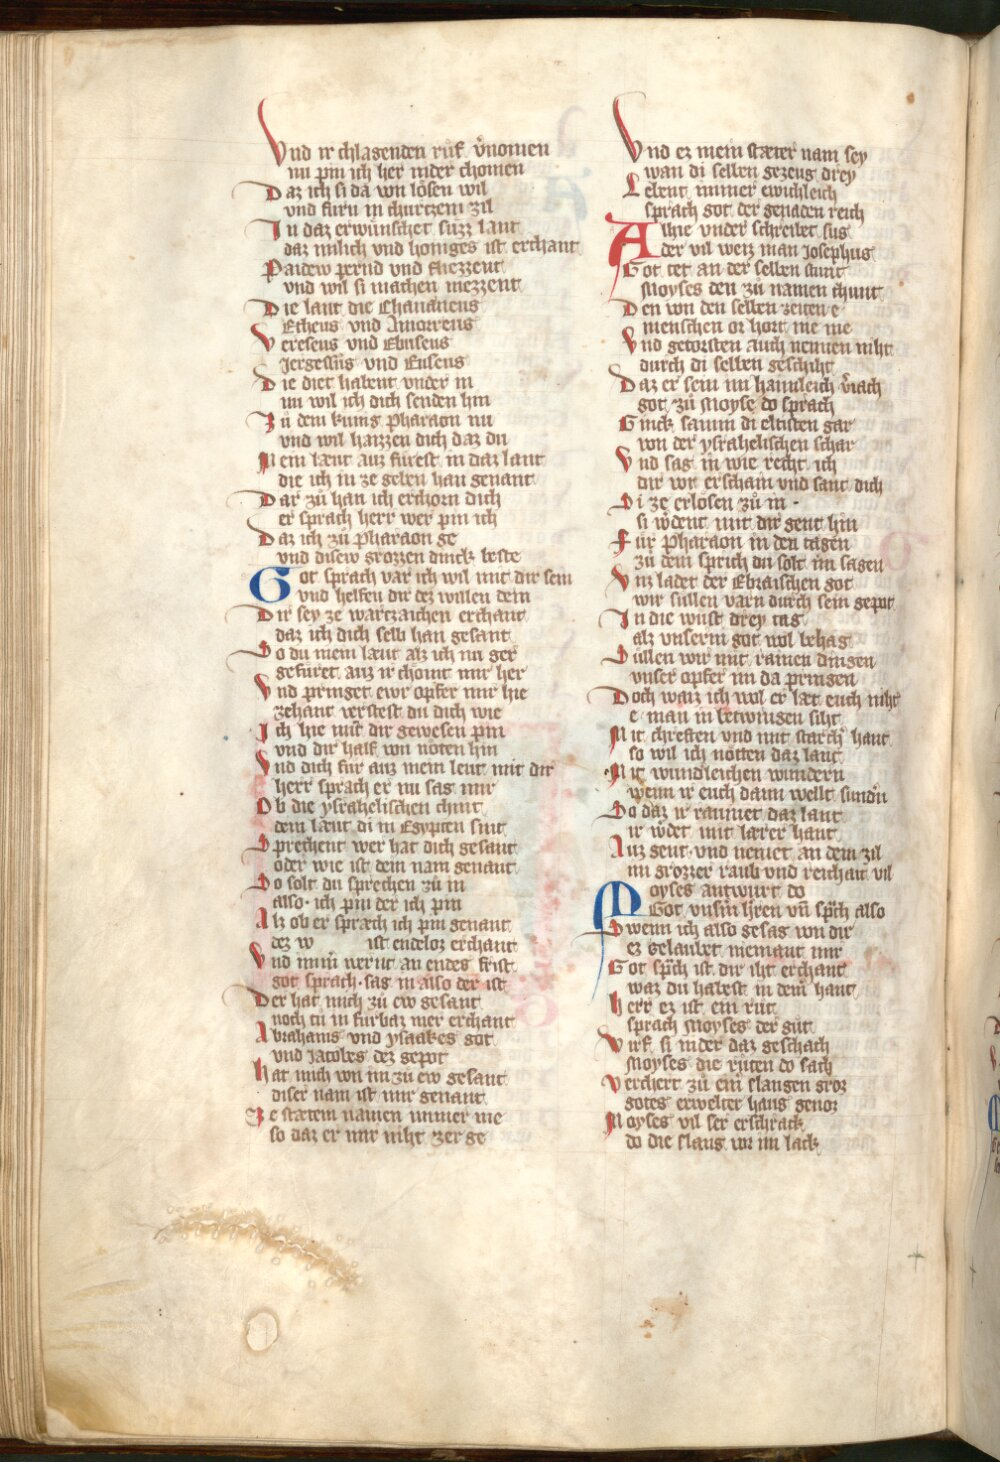 Vnd ir chlagenden růf v̓nomen
nu pin ich her nider chomen
Daz ich si da von lösen wil
vnd fürn in churtzem zil
In daz erwünschet süzz lant
daz milich vnd honiges ist erchant
Paidew pernd vnd fliezzent
vnd wil si machen niezzent
Die lant die Chananeus
Etheus vnd Amorreus
Vereseus vnd Ebuseus
Jergesëus vnd Eufeus
Die diet habent vnder in
nu wil ich dich senden hin
Zů dem kunig Pharaon nu
vnd wil haizzen dich daz du
Mein læut auz fürest in daz lant
die ich in ze geben han genant
Dar zů han ich erchorn dich
er sprach herr wer pin ich
Daz ich zů Pharaon ge
vnd disew grozzen dinck beste
Got sprach var ich wil mit dir sein
vnd helfen dir dez willen dein
Dir sey ze wartzaichen erchant
daz ich dich selb han gesant
So du mein læut alz ich nu ger
gefüret auz ir chömt mir her
Vnd pringet ewr opfer mir hie
zehant verstest du dich wie
Ich hie mit dir gewesen pin
vnd dir half von nöten hin
Vnd dich für auz mein leut mit dir
herr sprach er nu sag mir
Ob die ysrahelischen chint
dem læut di in Egypten sint
Sprechent wer hat dich gesant
oder wie ist dein nam genant
So solt du sprechen zů in
also · ich pin der ich pin
Alz ob er spræch ich pin genant
dez w ist endeloz erchant
Vnd nim̄ nernt an endes frist
got sprach · sag in also der ist
Der hat mich zů ew gesant
noch tů in fürbaz mer erchant
Abrahams vnd ysaakes got
vnd Jacobes dez gepot
Hat mich von im zů ew gesant
diser nam ist mir genant
Ze stætem namen immer me
so daz er mir niht zerge
Vnd ez mein stæter nam sey
wan di selben gezeug drey
Lebent immer ewichleich
sprach got der genaden reich
Alhie vnder schreibet sus
der vil weiz man Josephus
Got tet an der selben stunt
Moyses den zů namen chunt
Den von den selben zeiten e
menschen or hort nie me
Vnd getorsten auch nennen niht
durch di selben geschiht
Daz er sein im haimleich v̓iach
got zů Moyse do sprach
Ginck saum di eltisten gar
von der ysrahelischen schar
Vnd sag in wie recht ich
dir wr erschain vnd sant dich
Si ze erlosen zů in ·
si w̓dent mit dir gent hin
Für Pharaon in den tagen
zů dem sprich du solt im sagen
Vnz ladet der Ebraischen got
wir süllen varn durch sein gepot
In die wüst drey tag
alz vnserm got wol behag
Süllen wir mit rainen dingen
vnser opfer im da pringen
Doch waiz ich wol er læt euch niht
e man in betwingen siht
Mit chreften vnd mit starch̓ hant
so wil ich nötten daz lant
Mit wundleichen wundern
wenn ir euch dann wellt sund̓n
So daz ir raumet daz lant
ir w̓det mit lærer hant
Auz gent · vnd nemet an dem zil
im grozzer raub vnd reichait vil
Moyses antwurt do
Got vnsm̄ h̓ren vn̄ sp̓ch also
Swenn ich also gesag von dir
ez gelaubet niemant mir
Got sp̓ch ist dir iht erchant
waz du habest in dein̄ hant
Herr ez ist ein rüt
sprach Moyses der gůt
Wirf si nider daz geschach
Moyses die rüten do sach
Verchert zů ein̄ slangen groz
gotes erwelter haus genoz
Moyses vil ser erschrack
do die slang vor im lack